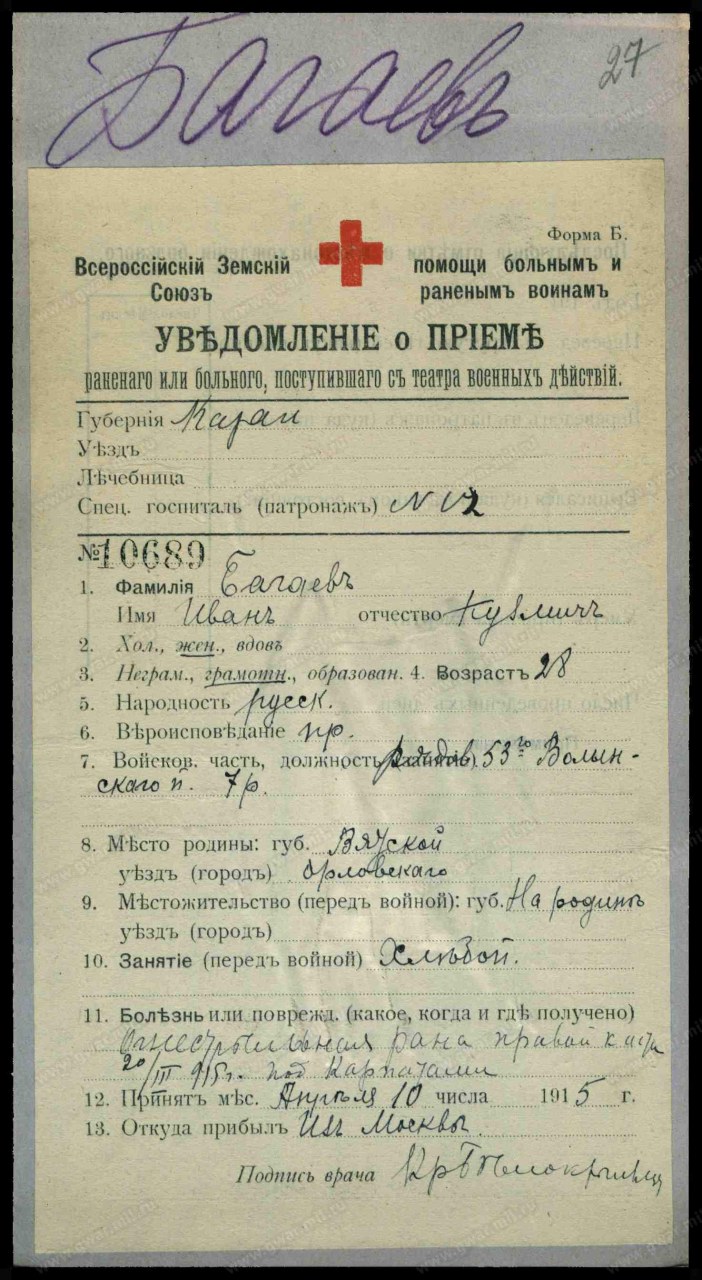 Багаевъ
27
Форма Б.
Всероссійскій Земскій помощи больнымъ и
Союзъ раненымъ воинамъ
УВѢДОМЛЕНІЕ о ПРІЕМѢ
раненаго или больного, поступившаго съ театра военныхъ дѣйствій.
Губернія Казан
Уѣздъ
Лѣчебница
Спец. госпиталь (патронажъ) N 12
№ 10689
1. Фамилія Багаевъ
Имя Иванъ отчество Кузмичъ
2. Хол., жен., вдовъ
3. Неграм., грамотн., образован. 4. Возрастъ 28
5. Народность русск.
6. Вѣроисповѣданіе пр.
7. Войсков. часть, должность рядов 53го Волын-
скаго п. 7р.
8. Мѣсто родины: губ. Вятской
уѣздъ (городъ) Орловскаго
9. Мѣстожительство (передъ войной): губ. На родинѣ
уѣздъ (городъ)
10. Занятіе (передъ войной) Хлѣбоп.
11. Болѣзнь или поврежд. (какое, когда и гдѣ получено)
Огнестрѣльная рана правой кисти
20/III 915г. под Карпатами
12. Принятъ мѣс. Апрѣля 10 числа 1915 г.
13. Откуда прибылъ Изъ Москвы.
Подпись врача